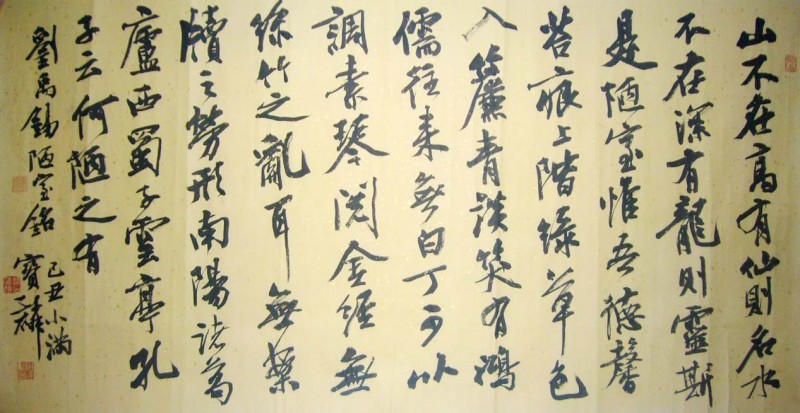 山不在高有仙則名水
不在深有龍則靈斯
是陋室惟吾德馨
苔痕上階綠草色
入簾青談笑有鴻
儒往來無白丁可以
調素琴閱金經無
絲竹之亂耳無案
牘之勞形南陽諸葛
廬西蜀子雲亭孔
子云何陋之有
劉禹錫陋室銘
己丑小滿
寶麟